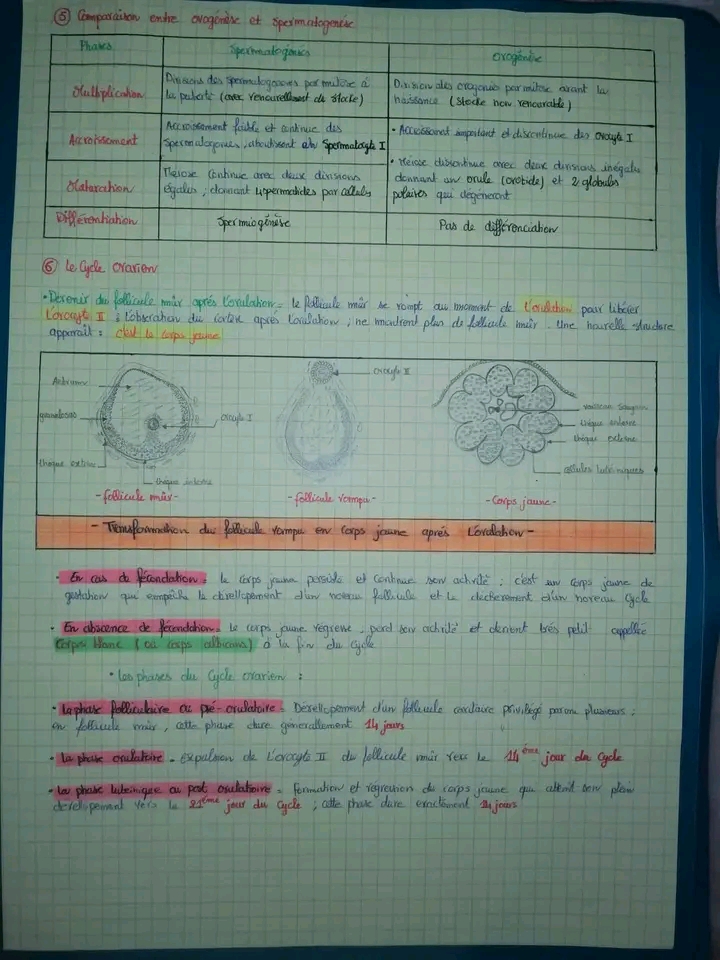 ⑤ Comparaison entre ovogénèse et spermatogenèse
Phases
Spermatogénès
ovogénèse
Multiplication
Divisions des spermatogonies par mitose à
la puberté (avec renouvellement de stocke)
Division des ovogonies par mitose avant la
naissance (stocke non renouvable)
Accroissement
Accroissement faible et continue des
spermatogonies, aboutissent a un Spermatocyte I
• Accroissement important et discontinue des ovocyte I
Maturation
Meiose continue avec deux divisions
égales ; donnant 4 spermatides par cellule
• Meiose discontinue avec deux divisions inégales
donnant un ovule (ovotide) et 2 globules
polaires qui dégénèrent
Différentiation
Spermiogénèse
Pas de différenciation
⑥ Le Cycle Ovarien
• Devenir du follicule mûr après l'ovulation = le follicule mûr se rompt au moment de l'ovulation pour libérer
l'ovocyte II ; l'observation du cortex après l'ovulation ; ne montrent plus de follicule mûr. Une nouvelle structure
apparait : c'est le corps jaune
Antrum
granulosas
thèque externe
ovocyte I
thèque interne
- follicule mûr -
ovocyte II
- follicule rompu -
vaisseau sanguin
thèque interne
thèque externe
cellules lutéiniques
- Corps jaune -
- Transformation du follicule rompu en corps jaune après l'ovulation -
• En cas de fécondation = le corps jaune persiste et continue son activité ; c'est un corps jaune de
gestation qui empêche le développement d'un nouveau follicule et le déclenchement d'un nouveau cycle
• En absence de fécondation = le corps jaune régresse, perd son activité et devient très petit appellée
Corps blanc (ou corps albicans) à la fin du cycle
• les phases du Cycle ovarien :
• la phase folliculaire ou pré-ovulatoire = Développement d'un follicule cavitaire privilégié parmi plusieurs ;
en follicule mûr, cette phase dure générallement 14 jours
• La phase ovulatoire = expulsion de l'ovocyte II du follicule mûr vers le 14ème jour du Cycle
• la phase luteinique ou post ovulatoire = formation et régression du corps jaune qui atteint son plein
développement vers le 21ème jour du cycle ; cette phase dure exactement 14 jours